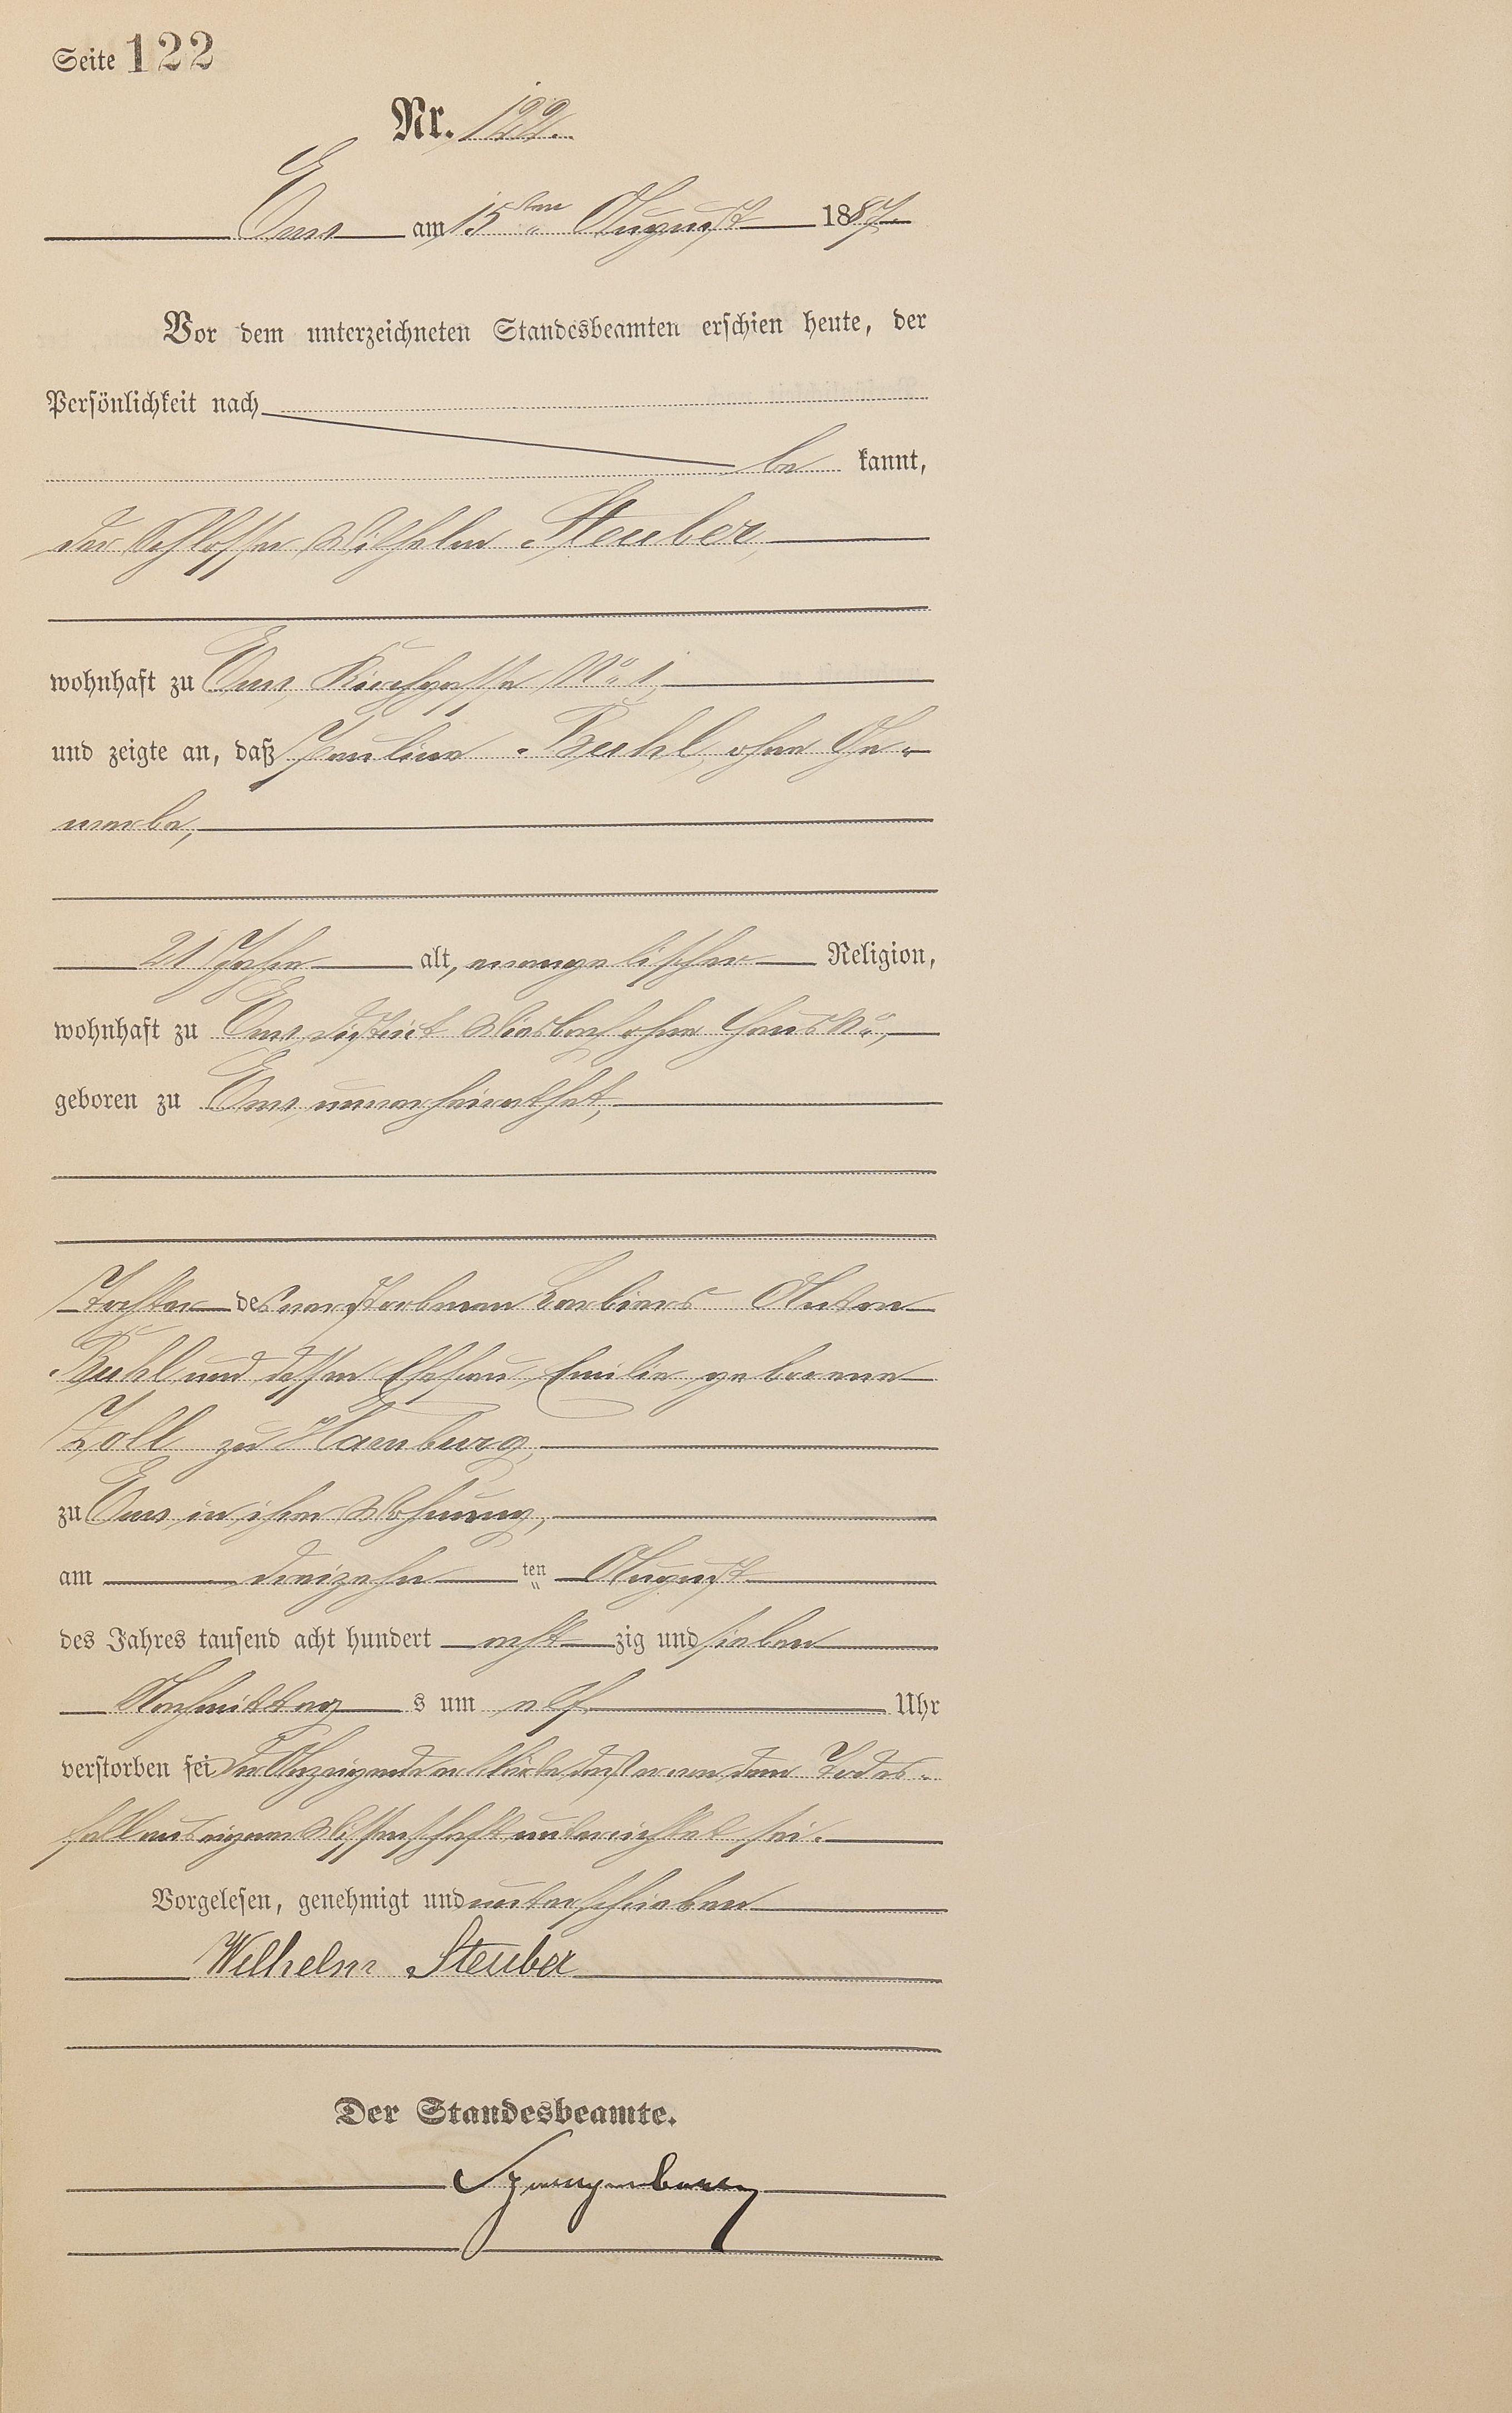 Seite 122
Nr. 122.
Ems am 15ten August 1887.
Vor dem unterzeichneten Standesbeamten erschien heute, der
Persönlichkeit nach
be kannt,
der Schlosser Wilhelm Steuber,
wohnhaft zu Ems, Kirchgasse No. 1,
und zeigte an, daß Pauline Buhl, ohne Ge-
werbe,
21 Jahre alt, evangelischer Religion,
wohnhaft zu Ems, District Wiesbach ohne Haus No.,
geboren zu Ems, unverheirathet,
Tochter des verstorbenen Barbiers Anton
Buhl und dessen Ehefrau, Emilie geborene
Zoll zu Hamburg,
zu Ems, in ihrer Wohnung,
am dreizehn ten August
des Jahres tausend acht hundert acht zig und sieben
Nachmittag s um elf Uhr
verstorben sei. Der Anzeigende erklärte daß er von dem Todes-
fall aus eigener Wissenschaft unterrichtet sei.
Vorgelesen, genehmigt und unterschrieben
Wilhelm Steuber
Der Standesbeamte.
Spangenberg